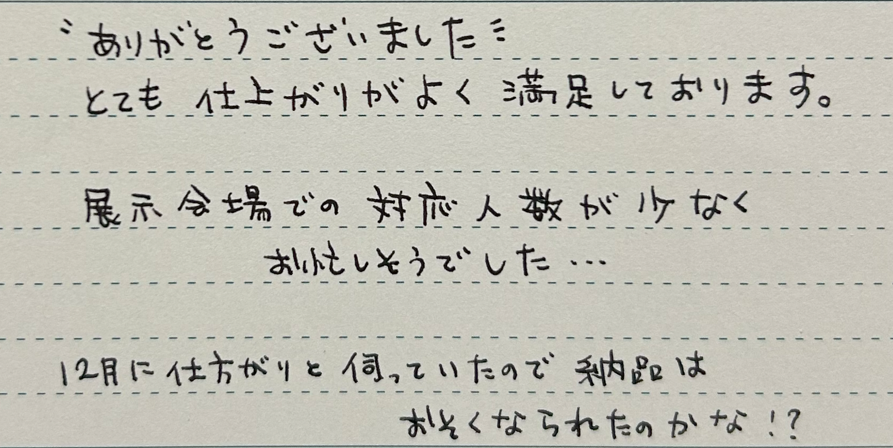 ありがとうございました
とても 仕上がりがよく 満足しております。
展示会場での 対応人数が少なく
お忙しそうでした…
12月に仕方がりと伺っていたので 納品は
おそくなられたのかな!?